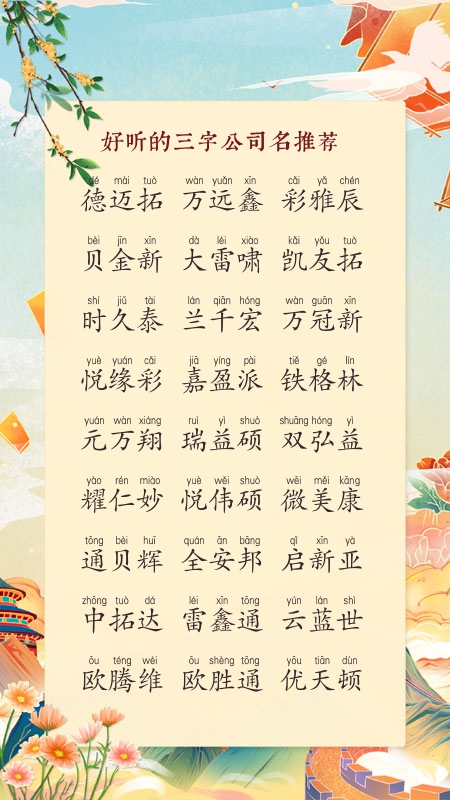 好听的三字公司名推荐
dé mài tuò wàn yuǎn xīn cǎi yǎ chén
德迈拓 万远鑫 彩雅辰
bèi jīn xīn dà léi xiào kǎi yǒu tuò
贝金新 大雷啸 凯友拓
shí jiǔ tài lán qiān hóng wàn guān xīn
时久泰 兰千宏 万冠新
yuè yuán cǎi jiā yíng pài tiě gé lín
悦缘彩 嘉盈派 铁格林
yuán wàn xiáng ruì yì shuò shuāng hóng yì
元万翔 瑞益硕 双弘益
yào rén miào yuè wěi shuò wēi měi kāng
耀仁妙 悦伟硕 微美康
tōng bèi huī quán ān bāng qǐ xīn yà
通贝辉 全安邦 启新亚
zhōng tuò dá léi xīn tōng yún lán shì
中拓达 雷鑫通 云蓝世
ōu téng wéi ōu shèng tōng yōu tiān dùn
欧腾维 欧胜通 优天顿